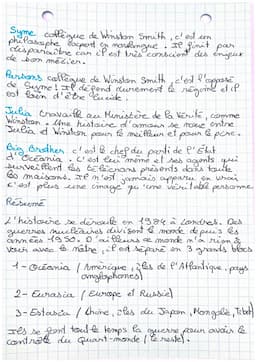 Syme collègue de Winston Smith, c'est un
philosophe expert en novlangue. Il finit par
disparaître car il est très conscient des enjeux
de son métier.
Parsons collègue de Winston Smith, c'est l'opposé
de Syme ! Il défend durement le régime et il
est loin d'être lucide.
Julia travaille au Ministère de la Vérité, comme
Winston. Une histoire d'amour se noue entre
Julia et Winston pour le meilleur et pour le pire.
Big Brother c'est le chef du parti de l'Etat
d'Océania. C'est lui même et ses agents qui
surveillent les télécrans présents dans toute
les maisons. Il n'est jamais apparu en vrai
c'est plus une image qu'une véritable personne.
Résumé
L'histoire se déroule en 1984 à Londres. Des
guerres nucléaires divisent le monde depuis les
années 1950. D'ailleurs ce monde n'a rien à
voir avec le nôtre, il est séparé en 3 grands blocs
1 - Océania (Amérique, îles de l'Atlantique, pays
anglophones)
2 - Eurasia (Europe et Russie)
3 - Estasia (Chine, îles du Japon, Mongolie, Tibet)
Ils se font tout le temps la guerre pour avoir le
contrôle du Quart-monde (le reste).